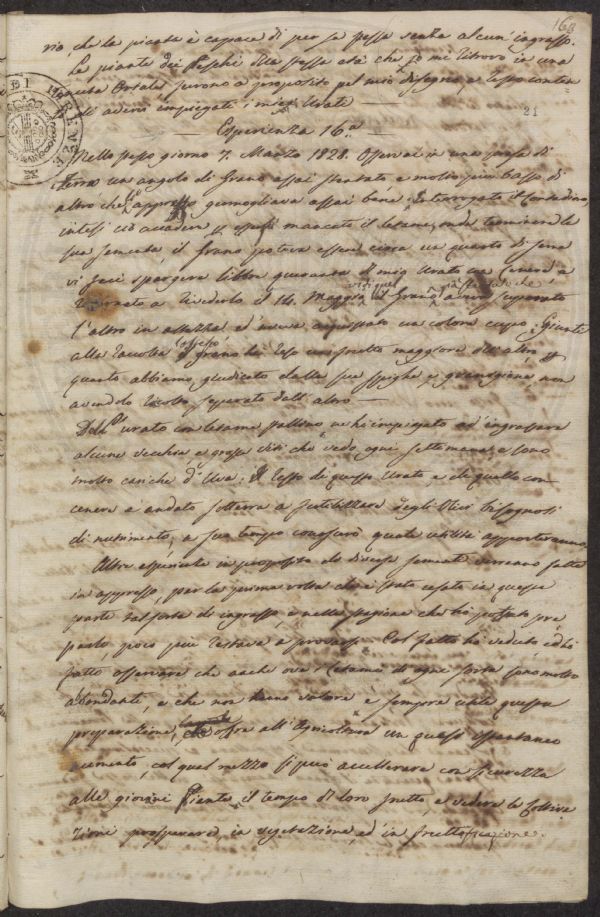 168
rio, che la piccola è capace di per se stessa senza alcun' ingrasso.
Le piante dei Peschi della stessa età che mi ritrovo in una
Ortale furono a proposito pel mio disegno, e resto conten
di averci impiegati i miei Urati
21
Esperienza 16.a
Nello stesso giorno 7. Marzo 1828. Osservai in una presa di
Terra un angolo di Grano assai stentato e molto più basso di
altro che appresso germogliava assai bene. Interrogato il Contadino,
intesi ciò accadere essere mancato il letame, onde terminare la
sua sementa, il Grano poteva essere circa un quarto di
vi feci spargere libbre quaranta di mio Urato con Cenere, a
ritornato a rivederlo il 14. Maggio il Grano aveva superato
l'altro in altezza ed aveva acquistato un colore cupo. Giunti
alla raccolta il grano ha reso un frutto maggiore dell'altro
quanto abbiamo giudicato dalle sue spighe, e granigione, non
avendolo scelto separato dall'altro
Dell'urato con letame pallino ne ho impiegato ad ingrassare
alcune vecchie e grosse viti che vedo ogni settimana, e sono
molto cariche d'Uva: Il resto di questo Urato, e di quello con
cenere è andato sotterra a fertilizzare degli Ulivi bisognosi
di nutrimento, a suo tempo conoscerò quale utilità apporteranno
Altre esperienze in proposito di diverse sementi verranno fatte
in appresso, per la prima volta che è stata usata in questa
parte tal sorta di ingrasso, e nella stagione che ho
poco più restava a provarsi. Col fatto ho veduto, ed ho
fatto osservare che anche ove i Letami di ogni sorta sono molto
abbondanti, e che non hanno valore è sempre utile questa
preparazione, offre all'Agricoltura un quasi spontaneo
aumento, col qual mezzo si può accellerare con sicurezza
alle giovani Piante il tempo di loro frutto, e vedere le Coltiva
zioni prosperare, in vegetazione, ed in fruttificazione.